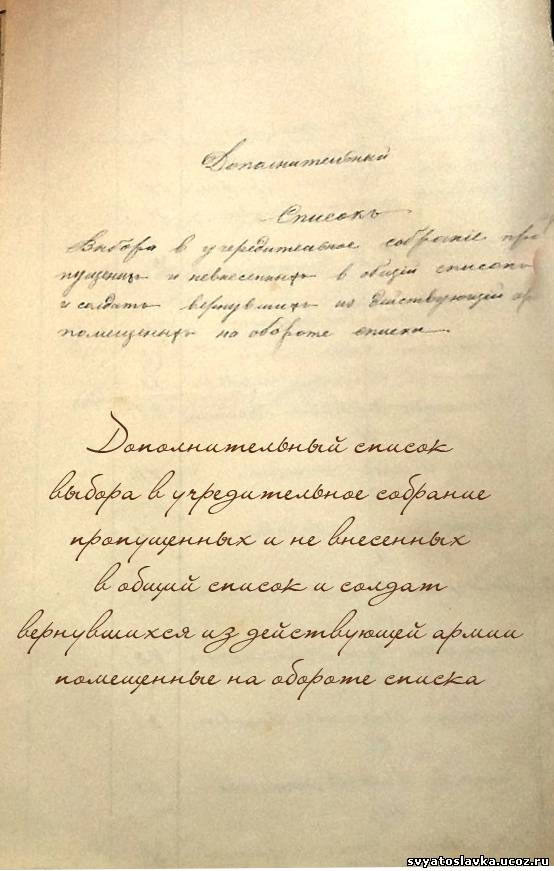 Дополнительный
Списокъ
Выбора в учредительное собрание про
пущеных и невнесенных в общiй списокъ
и солдатъ вернувших из действующей ар
помещенных на обороте списка
Дополнительный список
выбора в учредительное собрание
пропущенных и не внесенных
в общий список и солдат
вернувшихся из действующей армии
помещенные на обороте списка
svyatoslavka.ucoz.ru